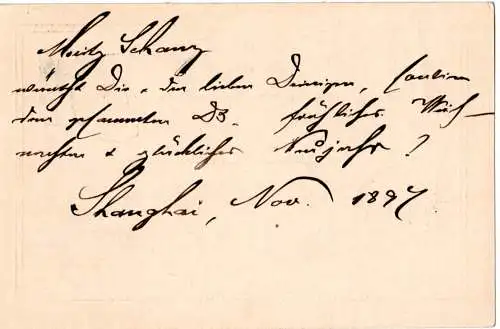 Moritz Schanz
wünscht Dir & den lieben Deinigen, sowie
dem gesammten D3. fröhliches Weih-
nachten & glückliches Neujahr!
Shanghai, Nov. 1897